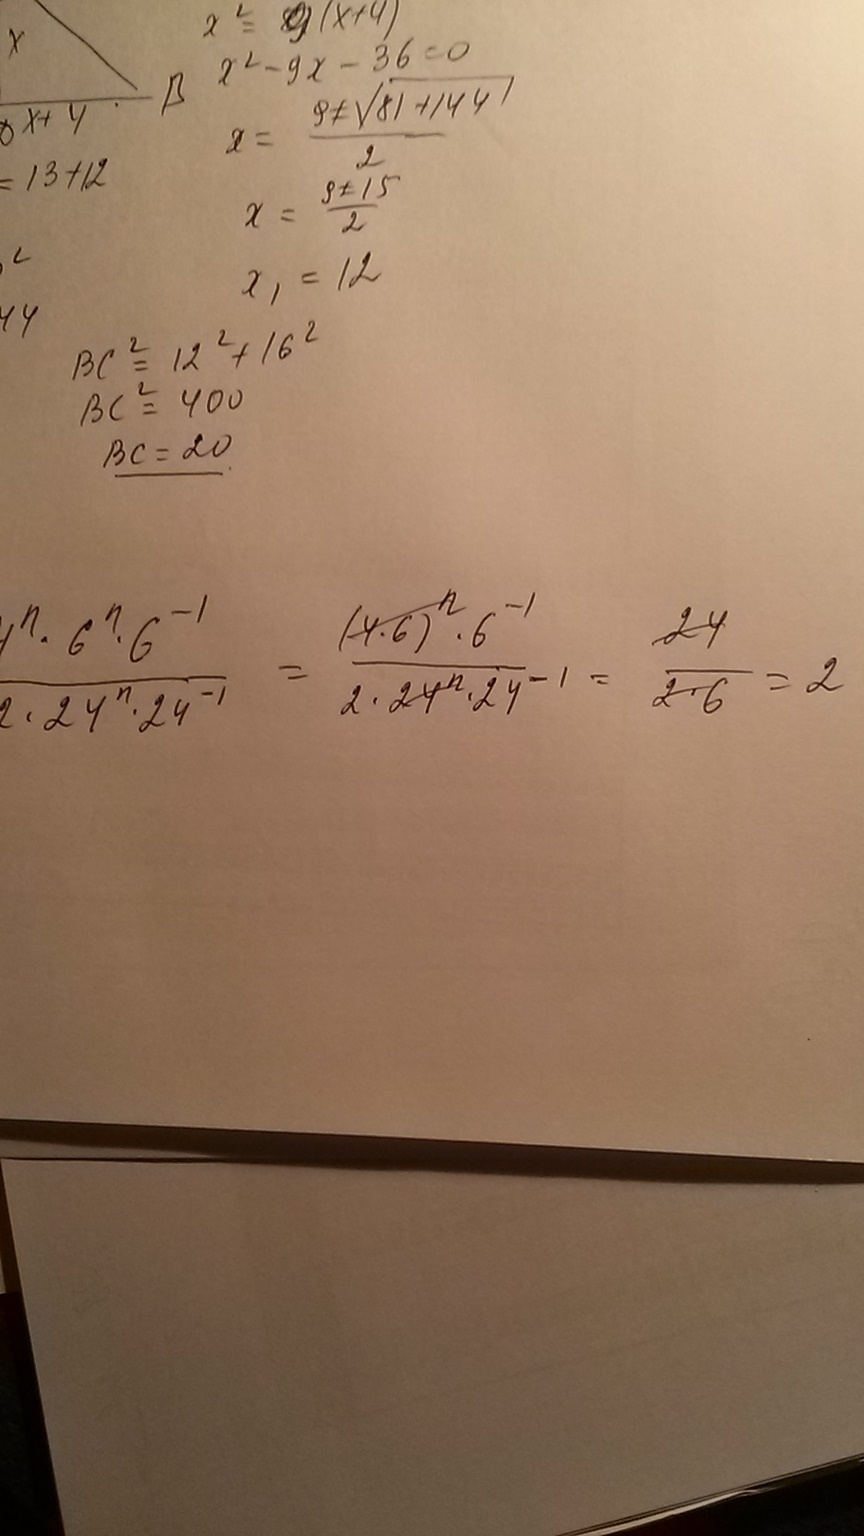 x² = 9(x+4)
x
x² - 9x - 36 = 0
B
x+4
x = (9±√(81+144))/2
= 13+12
x = (9±15)/2
x₁ = 12
²
44
BC² = 12² + 16²
BC² = 400
BC = 20
4ⁿ·6ⁿ·6⁻¹ / 2·24ⁿ·24⁻¹ = (4·6)ⁿ·6⁻¹ / 2·24ⁿ·24⁻¹ = 24 / 2·6 = 2